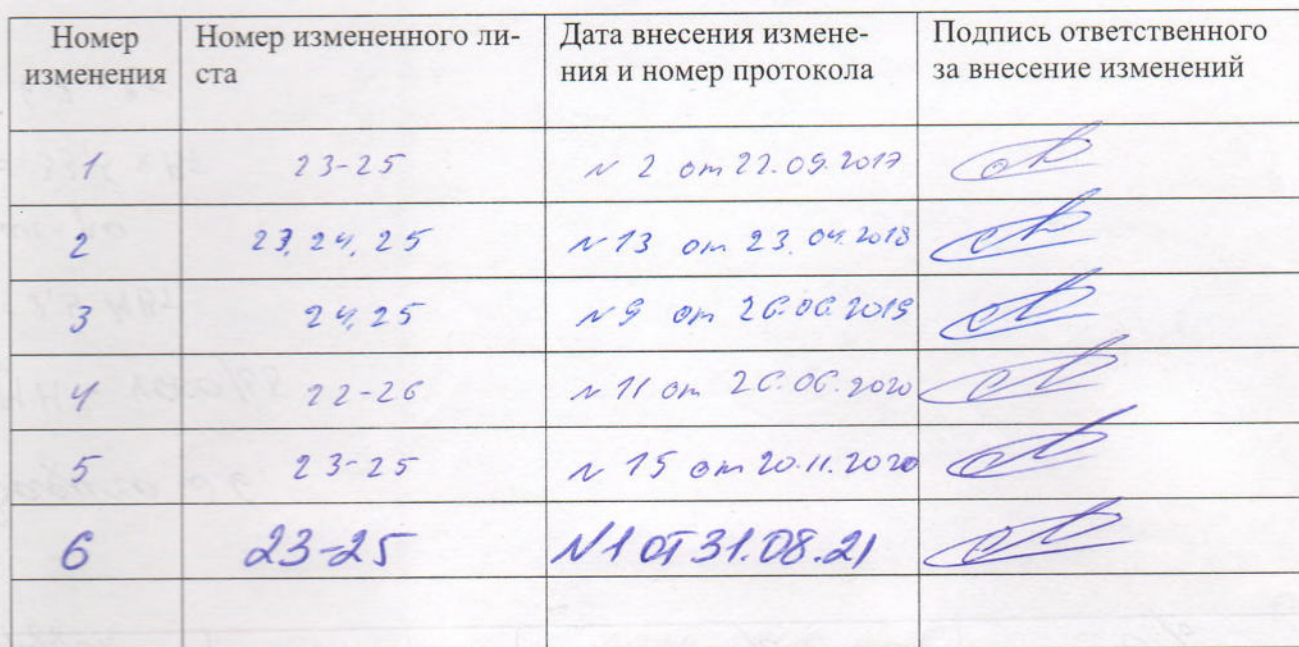 Номер изменения
Номер измененного ли-
ста
Дата внесения измене-
ния и номер протокола
Подпись ответственного
за внесение изменений
1 23-25 N 2 от 22.09.2017
2 23, 24, 25 N 13 от 23.04.2018
3 24, 25 N 9 от 26.06.2019
4 22-26 N 11 от 26.06.2020
5 23-25 N 15 от 20.11.2020
6 23-25 N1 от 31.08.21